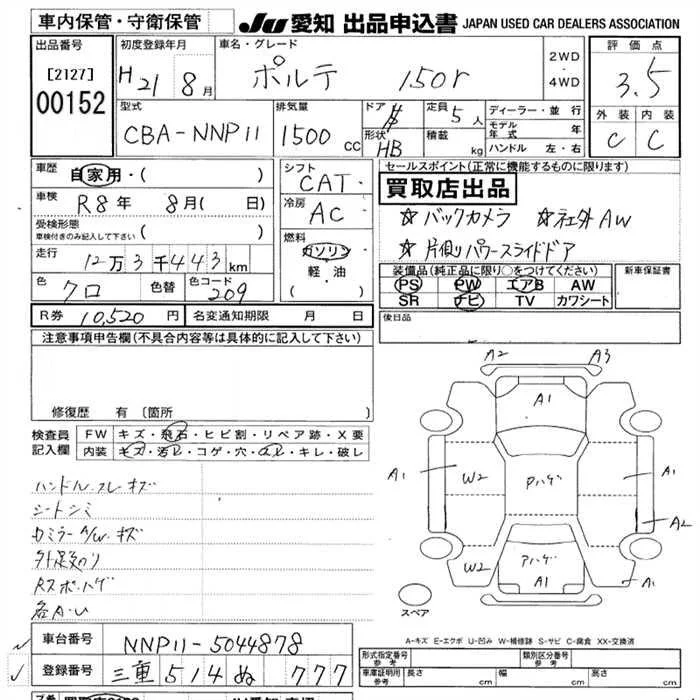 車内保管・守衛保管
JU 愛知 出品申込書 JAPAN USED CAR DEALERS ASSOCIATION
出品番号
[2127]
00152
初度登録年月
H 21 8月
車名・グレード
ポルテ 150r
2WD
・
4WD
評価点
3.5
外装 内装
C C
型式
CBA-NNP11
排気量
1500 CC
ドア
形状
HB
定員 5人
積載 kg
ディーラー・並行
モデル年式 年
ハンドル 左・右
車歴
自家用・( )
車検
R8年 8月( 日)
受検形態
車検付きのみ記入して下さい ( )
走行
12万3千443km
色 クロ 色替 色コード 209
シフト
CAT
冷房
AC
燃料
ガソリン
軽・油
( )
セールスポイント(正常に機能するものに限ります)
買取店出品
☆バックカメラ ☆社外AW
☆片側パワースライドドア
装備品(純正品に限り○をつけてください)
PS PW エアB AW
SR ナビ TV カワシート
新車保証書
後日品
R券 10,520円 名変通知期限 月 日
注意事項申告欄(不具合内容等は具体的に記入して下さい)
修復歴 有〔箇所 〕
検査員
記入欄
FW キズ・飛石・ヒビ割・リペア跡・X要
内装 キズ・汚レ・コゲ・穴・スレ・キレ・破レ
ハンドル スレ キズ
シートシミ
カミラー A/W キズ
Rスポ ハゲ
各A・U
A2 A3
A1
A1 W2 Pハゲ A1
A2
W2 Pハゲ A1
A1
スペア
A-キズ E-エクボ U-凹み W-補修跡 S-サビ C-腐食 XX-交換済
車台番号 NNP11-5044878
登録番号 三重 514 ぬ 777
形式指定番号
参考
類別区分番号
参考
車庫証明用
参考
長さ cm 幅 cm 高さ cm